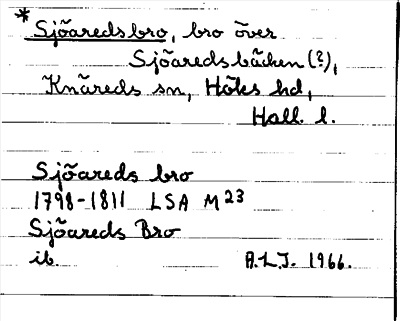 * Sjöaredsbro, bro över
Sjöaredsbäcken (?),
Knäreds sn, Höks hd,
Hall. l.
Sjöareds bro
1798-1811 LSA M 23
Sjöareds Bro
ib. A.L.J. 1966.